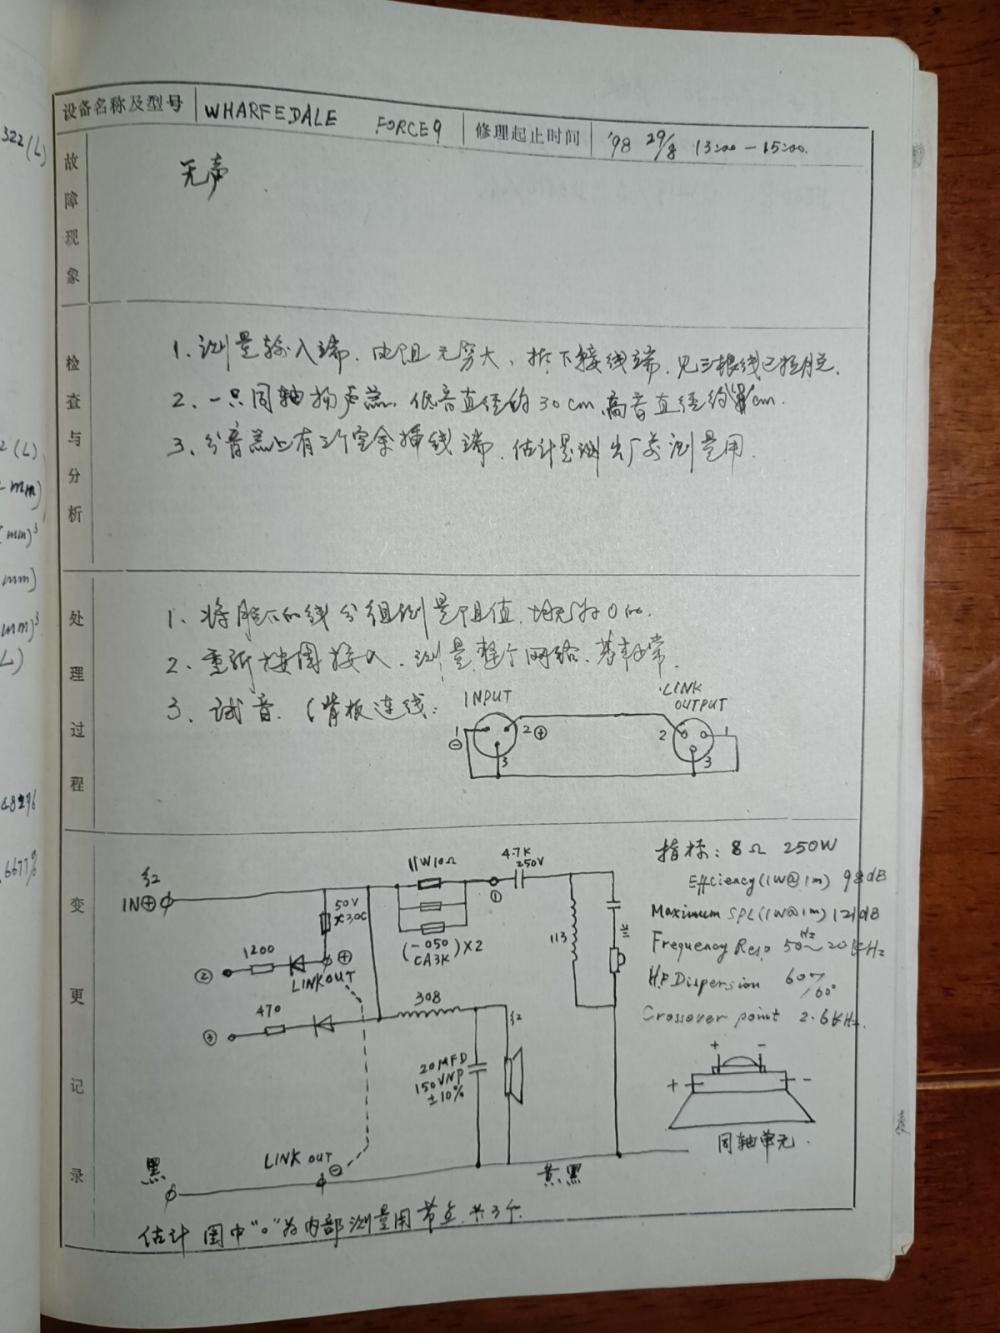 设备名称及型号 WHARFEDALE FORCE9 修理起止时间 '98 29/8 13:00-15:00.
故障现象
无声
检查与分析
1. 测量输入端,电阻无穷大,拆下接线端,见三根线已拉脱.
2、一只同轴扬声器,低音直径约30cm,高音直径约 cm.
3、分音器上有三个空余插线端,估计是 出厂前测量用.
处理过程
1、将脱下的线分组测量阻值,均 为0
2、重新按图接入,测量整个网络,基本正常.
3、试音. (背板连线:
INPUT
LINK OUTPUT
1 ⊖ 2 ⊕ 3
2 1 3
变更记录
红
IN⊕
11W10Ω
4.7K
250V
①
(-050)X2
CA3K
50V
1200
②
⊕
LINKOUT
470
③
308
113
20MFD
150VNP
±10%
红
黑
LINK OUT
⊖
黄黑
指标: 8Ω 250W
Efficiency(1W@1m) 98dB
Maximum SPL(1W@1m) 121dB
Frequency Resp 50Hz~20KHz
H.F Dispersion 60°/60°
Crossover point 2.6KHz.
+ -
+ -
同轴单元.
估计 图中"o"为内部测量用节点,共3个.
322(L)
2(L)
mm)
(mm)³
mm)
mm)³
L)
48296
.6677%